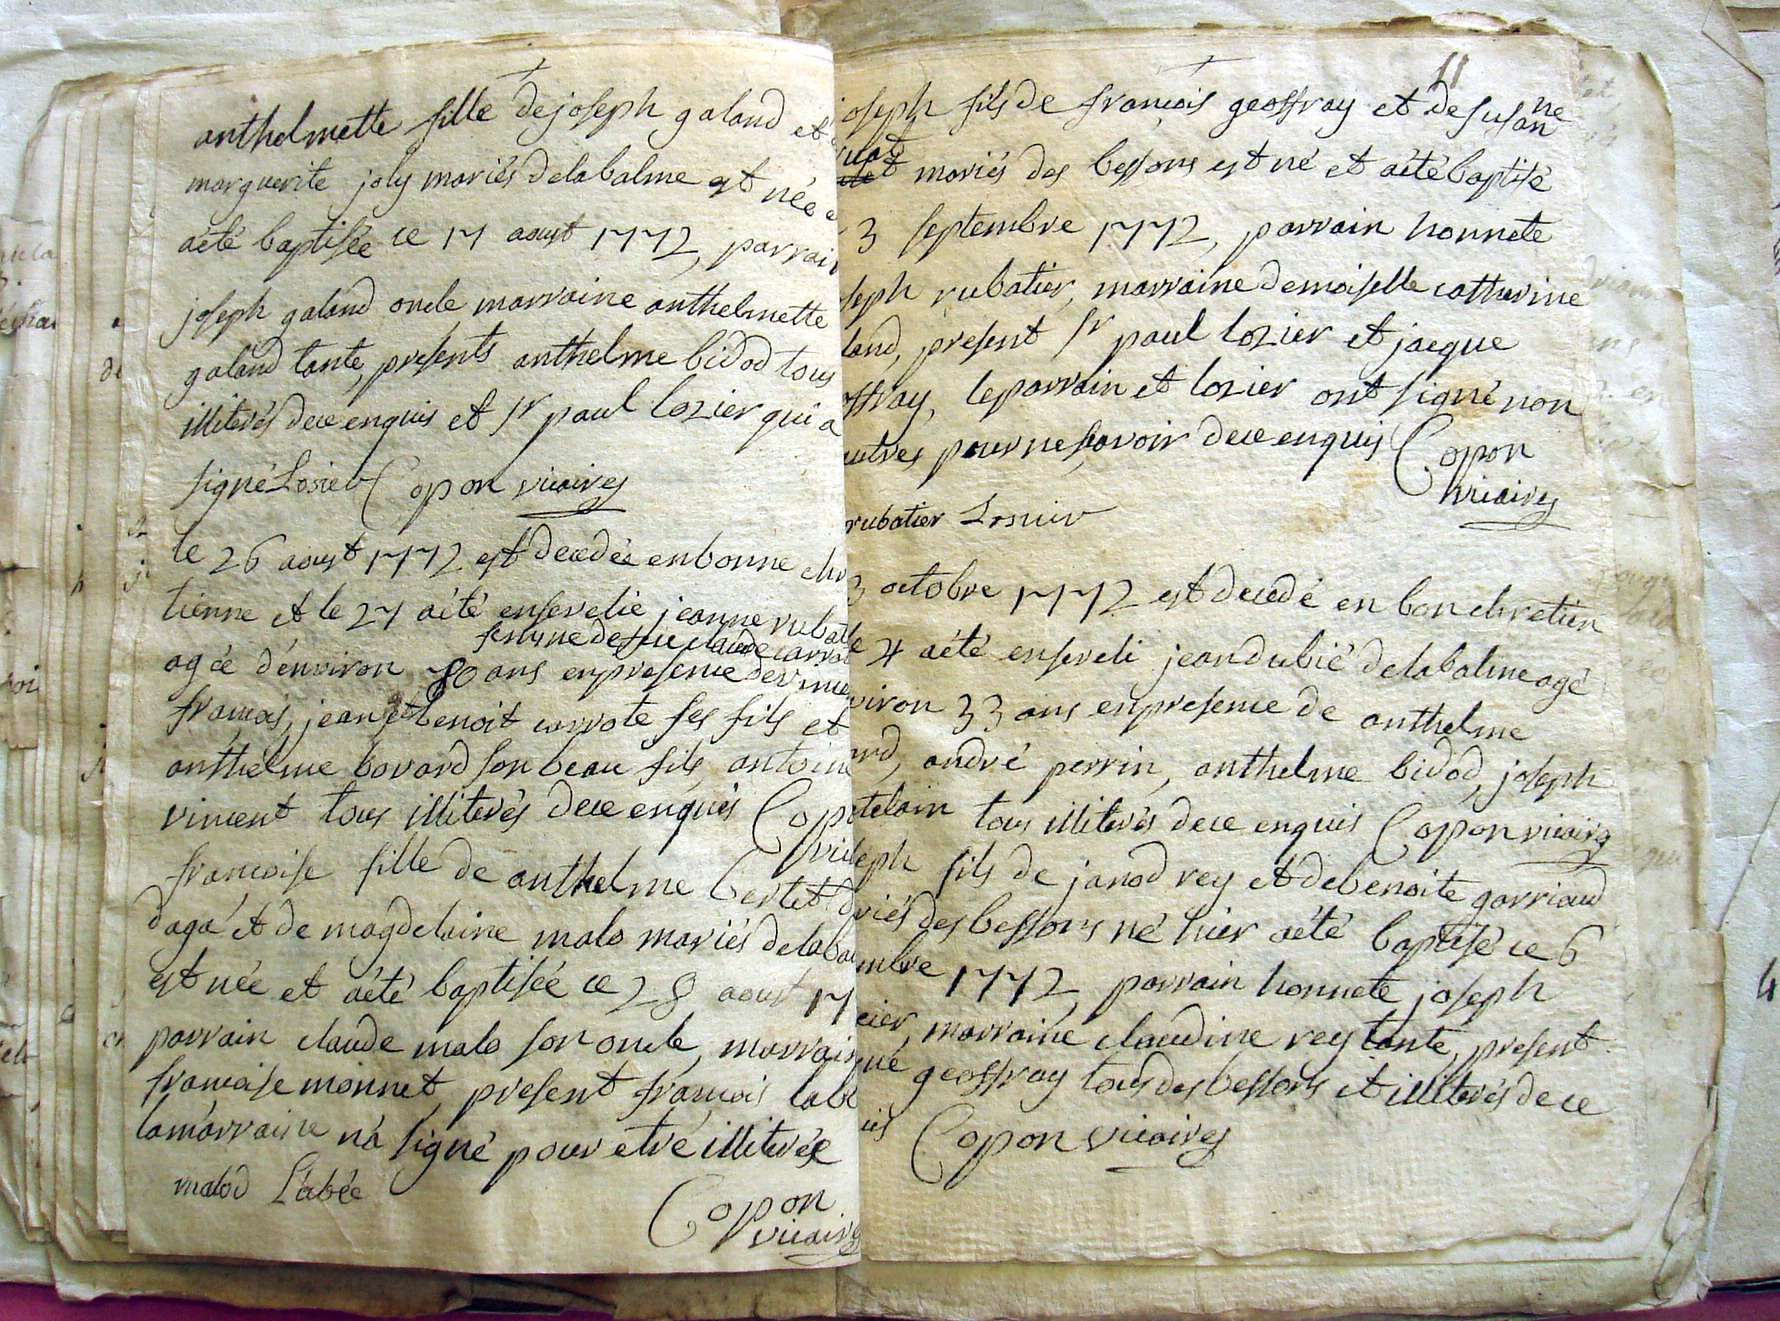 anthelmette fille de joseph galand et
marguerite joly mariés delabalme est née
aété baptisée ce 17 aoust 1772, parrain
joseph galand oncle marraine anthelmette
galand tante, presents anthelme bidod tous
illiterés dece enquis et sr paul lozier qui a
signé Losier Copon vicaire
le 26 aoust 1772 est decedée enbonne chr
tienne et le 27 aété ensevelie jeanne rubat
femme de feu claude carrote
agée d'environ 80 ans enpresence de vince
francois, jean et benoit carrote ses fils et
anthelme bovard son beau fils, antoine
vincent tous illiterés dece enquis Cop
vic
francoise fille de anthelme bertet d
daga et de magdelaine malo mariés delaba
est née et aété baptisée ce 28 aoust 17
parrain claude malo son oncle, marrain
francoise monnet, present francois labé
lamarraine na signé pour etre illiterée
malod Labée
Copon
vicaire
11
joseph fils de francois geoffray et de susanne
mariés des bessons est né et aété baptisé
3 septembre 1772, parrain honnete
seph rubatier, marraine demoiselle catherine
land, present sr paul lozier et jacque
offray, leparrain et lozier ont signé non
autres pour ne scavoir dece enquis Copon
vicaire
rubatier Losier
3 octobre 1772 est decedé en bon chretien
le 4 aété enseveli jean dubié delabalme agé
viron 33 ans enpresence de anthelme
ard, andré perrin, anthelme bidod, joseph
telain tous illiterés dece enquis Copon vicaire
seph fils de janod rey et debenoite garriaud
riés des bessons né hier aété baptisé ce 6
mbre 1772, parrain honnete joseph
cier, marraine claudine rey tante, present
né geoffray tous des bessons et illiterés dece
uis Copon vicaire
4